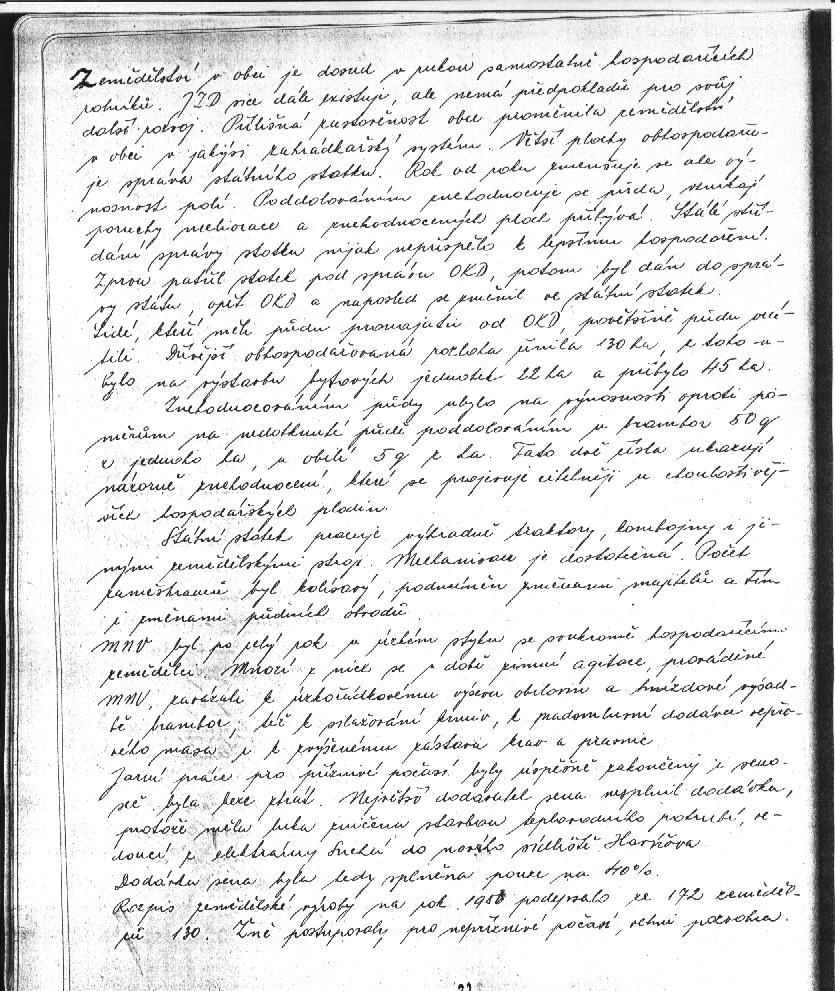 Zemědělství v obci je dosud v rukou samostatně hospodařících
rolníků. JZD sice dále existuje, ale nemá předpokladů pro svůj
další rozvoj. Přílišná zastavěnost obce proměnila zemědělství
v obci v jakýsi zahrádkářský systém. Větší plochy obhospodařu-
je správa státního statku. Rok od roku zmenšuje se ale vý-
nosnost polí. Poddolováním znehodnocuje se půda, vznikají
poruchy meliorace a znehodnocených ploch přibývá. Stálé stří-
dání správy statku nijak nepřispělo k lepšímu hospodaření.
Zprvu patřil statek pod správu OKD, potom byl dán do sprá-
vy státu, opět OKD a naposled se změnil ve státní statek.
Lidé, kteří měli půdu pronajatu od OKD, povětšině půdu vrá-
tili. Dřívější obhospodařovaná rozloha činila 130 ha, z toho u-
bylo na výstavbu bytových jednotek 22 ha a přibylo 45 ha.
Znehodnocováním půdy ubylo na výnosnosti oproti po-
měrům na nedotknuté půdě poddolováním u brambor 50 q
z jednoho ha, u obilí 5 q z ha. Tato dvě čísla ukazují
názorně znehodnocení, které se projevuje citelněji u choulostivěj-
ších hospodářských plodin.
Státní statek pracuje výhradně traktory, kombajny i ji-
nými zemědělskými stroji. Mechanisace je dostatečná. Počet
zaměstnanců byl kolísavý, podmíněn změnami majitelů a tím
i změnami půdních obvodů.
MNV byl po celý rok v úzkém styku se soukromě hospodařícími
zemědělci. Mnozí z nich se v době zimní agitace, prováděné
MNV, zavázali k úzkořádkovému výsevu obilovin a hnízdové výsad-
bě brambor, též k silážování krmiv, k nadomluvní dodávce vepřo-
vého masa i k zvýšenému zástavu krav a prasnic.
Jarní práce pro příznivé počasí byly úspěšně zakončeny i seno-
seč byla beze ztrát. Největší dodavatel sena nesplnil dodávku,
protože měla luka zničena stavbou teplovodního potrubí, ve-
doucí z elektrárny Suchá do nového sídliště Havířova.
Dodávka sena byla tedy splněna pouze na 40%.
Rozpis zemědělské výroby na rok podepsalo ze 172 zeměděl-
ců 130. Žně postupovaly, pro nepříznivé počasí, velmi pozvolna.